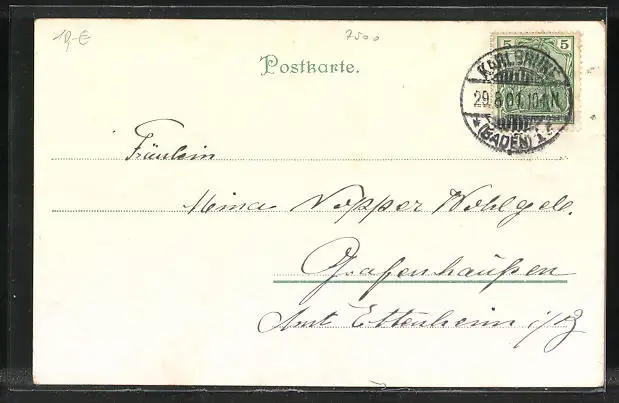 19,-€
7500
Postkarte.
5 5
KARLSRUHE
29.8.01.10-11N
* (BADEN) 1 *
Fräulein
Mina Vopper Wohlgeb.
Grafenhaußen
Amt Ettenheim i/B